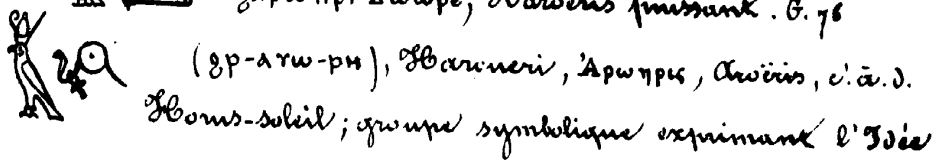 Haroëris puissant. G. 76
(ϩⲣ-ⲁⲩⲱ-ⲣⲏ), Haroueri, Ἀρωηρις, Aroëris, c.à.d.
Horus-soleil; groupe symbolique exprimant l'Idée